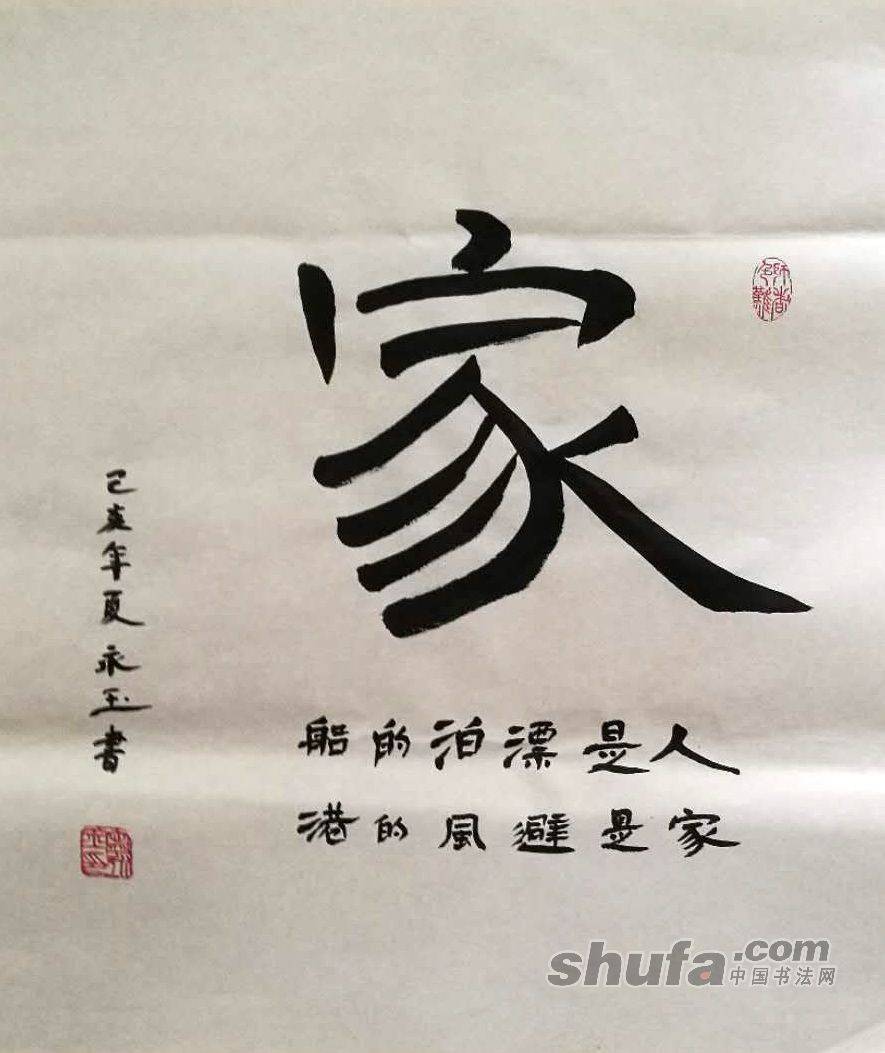 家
人是漂泊的船
家是避風的港
己亥年夏永玉書
shufa.com
中国书法网